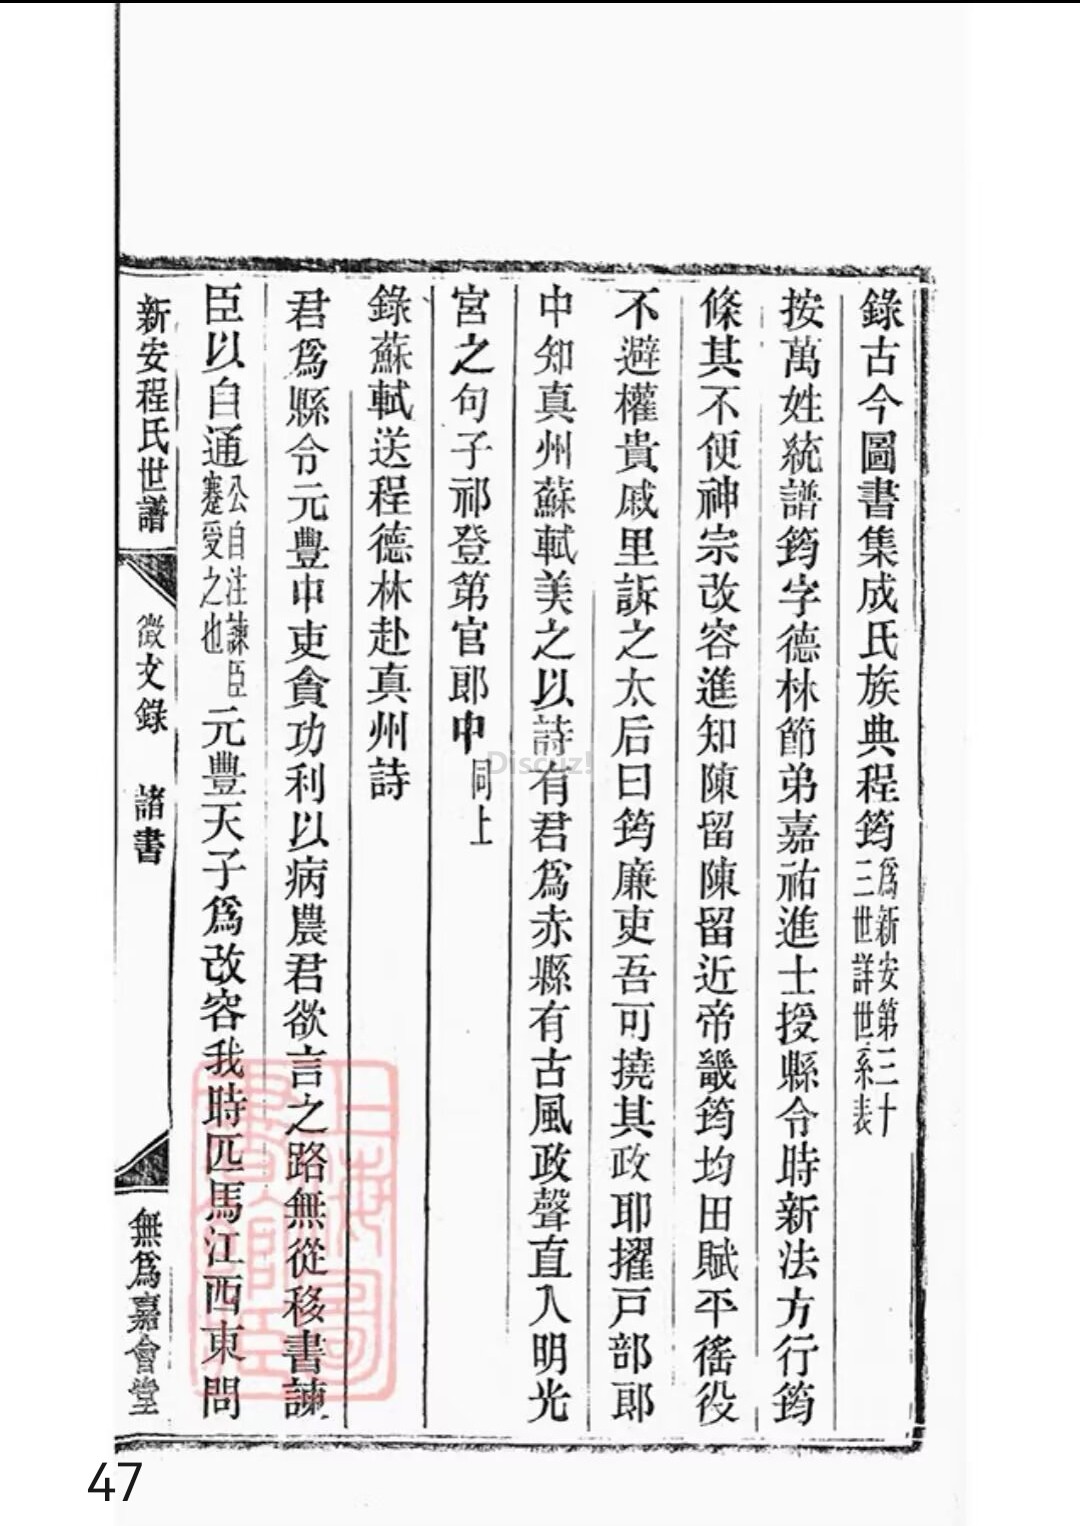 錄古今圖書集成氏族典程筠爲新安第三十三世詳世系表
按萬姓統譜筠字德林節弟嘉祐進士授縣令時新法方行筠
條其不便神宗改容進知陳留陳留近帝畿筠均田賦平徭役
不避權貴戚里訴之太后曰筠廉吏吾可撓其政耶擢戸部郎
中知真州蘇軾美之以詩有君爲赤縣有古風政聲直入明光
宮之句子祁登第官郎中同上
錄蘇軾送程德林赴真州詩
君爲縣令元豐中吏貪功利以病農君欲言之路無從移書諫
臣以自通公自注諫臣蹇受之也元豐天子爲改容我時匹馬江西東問
新安程氏世譜 徵文錄 諸書 無爲嘉會堂
上海圖書館藏
Discuz!
47